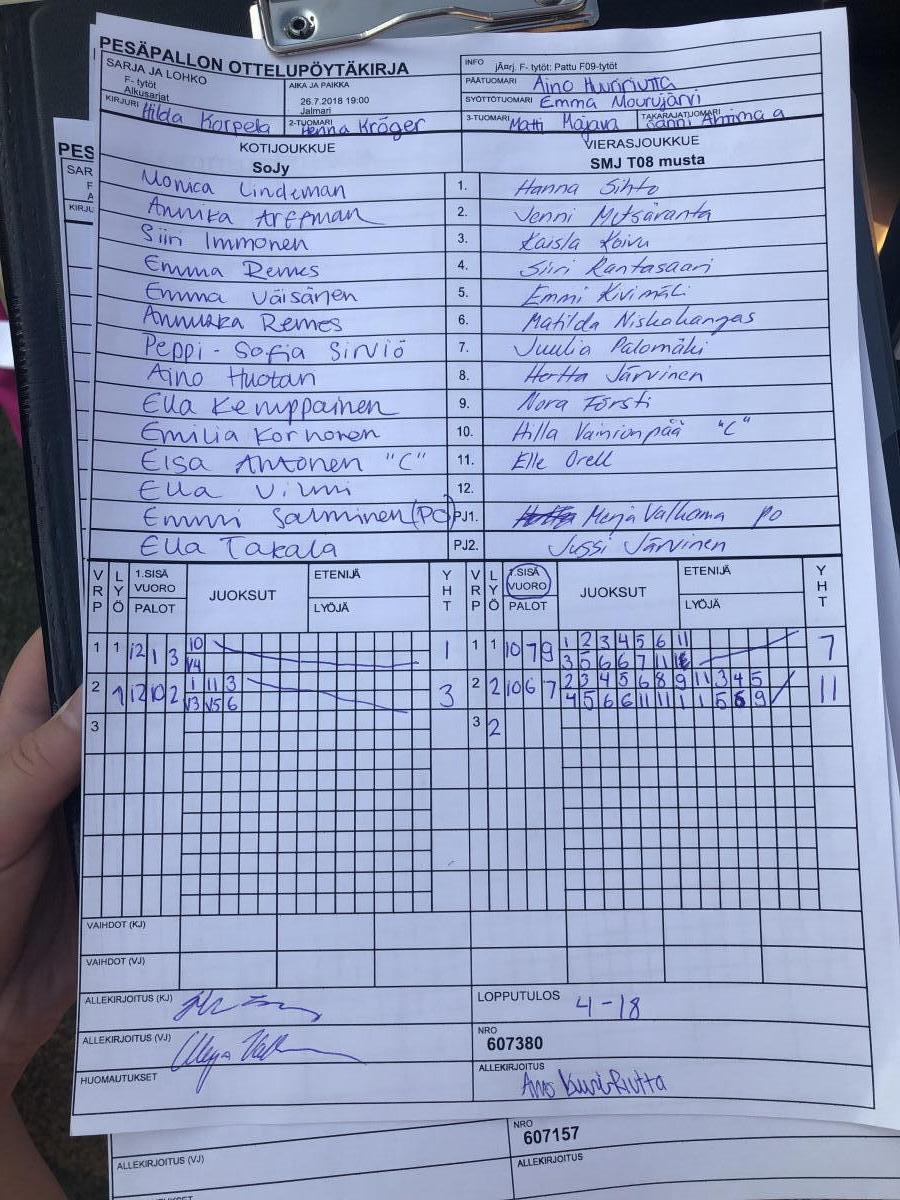 PESÄPALLON OTTELUPÖYTÄKIRJA
SARJA JA LOHKO
F- tytöt
Alkusarjat
AIKA JA PAIKKA
26.7.2018 19:00
Jalmari
INFO jÃ¤rj. F- tytöt: Pattu F09-tytöt
PÄÄTUOMARI Aino
SYÖTTÖTUOMARI Emma Mourujärvi
KIRJURI Hilda Korpela
2-TUOMARI Henna Kröger
3-TUOMARI Matti Majava
TAKARAJATUOMARI Sanni
KOTIJOUKKUE VIERASJOUKKUE
SoJy SMJ T08 musta
Monica Lindeman 1. Hanna Sihto
Annika Arffman 2. Jenni Mutsäranta
Siiri Immonen 3. Kaisla Koivu
Emma Remes 4. Siiri Rantasaari
Emma Väisänen 5. Emmi Kivimäki
Annukka Remes 6. Matilda Niskakangas
Peppi-Sofia Sirviö 7. Juulia Palomäki
Aino Huotari 8. Hertta Järvinen
Ella Kemppainen 9. Nora Försti
Emilia Korhonen 10. Hilla Vainionpää "C"
Elsa Ahtonen "C" 11. Elle Orell
Ella Vilmi 12.
Emmi Salminen (PO) PJ1. Merja Valkama po
Ella Takala PJ2. Jussi Järvinen
VRP LYÖ 1.SISÄ VUORO PALOT JUOKSUT ETENIJÄ LYÖJÄ YHT VRP LYÖ 1.SISÄ VUORO PALOT JUOKSUT ETENIJÄ LYÖJÄ YHT
1 1 12 1 3 10 1 1 1 10 7 9 1 2 3 4 5 6 11 7
V4 3 5 6 6 7 11
2 1 12 10 2 1 11 3 3 2 2 10 6 7 2 3 4 5 6 8 9 11 3 4 5 11
V3 V5 6 4 5 6 6 11 11 1 1 5 6 9
3 3 2
VAIHDOT (KJ)
VAIHDOT (VJ)
ALLEKIRJOITUS (KJ) LOPPUTULOS 4-18
ALLEKIRJOITUS (VJ) NRO
607380
HUOMAUTUKSET ALLEKIRJOITUS
PES
SAR
F
A
KIRJU
NRO
607157
ALLEKIRJOITUS (VJ) ALLEKIRJOITUS